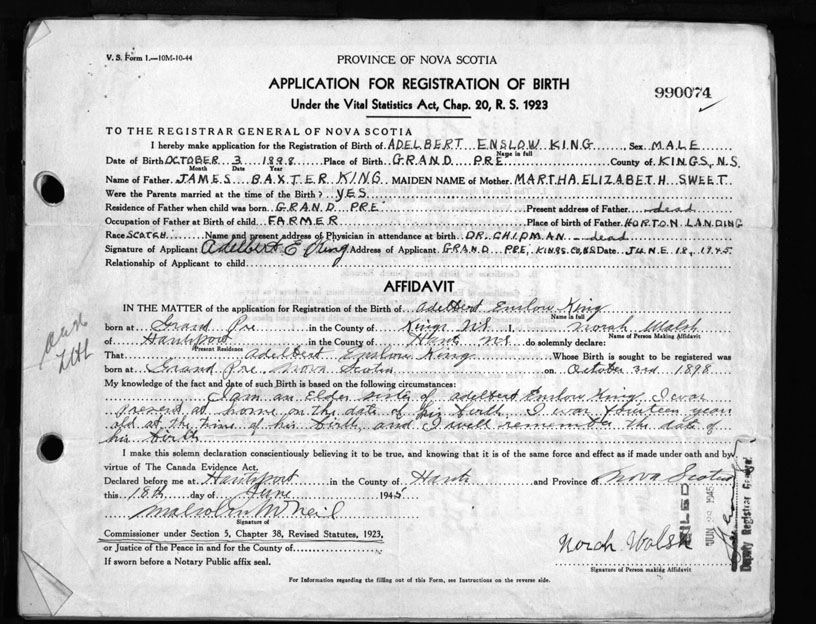 V. S. Form 1.—10M-10-44
PROVINCE OF NOVA SCOTIA
APPLICATION FOR REGISTRATION OF BIRTH
990074
Under the Vital Statistics Act, Chap. 20, R. S. 1923
TO THE REGISTRAR GENERAL OF NOVA SCOTIA
I hereby make application for the Registration of Birth of ADELBERT ENSLOW KING Sex MALE
Name in full
Date of Birth OCTOBER 3 1898 Place of Birth GRAND PRE County of KINGS, N.S.
Month Date Year
Name of Father JAMES BAXTER KING MAIDEN NAME of Mother MARTHA ELIZABETH SWEET
Were the Parents married at the time of the Birth? YES
Residence of Father when child was born GRAND PRE Present address of Father dead
Occupation of Father at Birth of child FARMER Place of birth of Father HORTON LANDING
Race SCOTCH Name and present address of Physician in attendance at birth DR. CHIPMAN dead
Signature of Applicant Adelbert E King Address of Applicant GRAND PRE, KINGS. CO, N.S Date JUNE 18, 1945
Relationship of Applicant to child
AFFIDAVIT
IN THE MATTER of the application for Registration of the Birth of Adelbert Enslow King
Name in full
born at Grand Pre in the County of Kings NS I, Norah Walsh
Name of Person Making Affidavit
of Hantsport of Hants NS do solemnly declare:
Present Residence
That Adelbert Enslow King Whose Birth is sought to be registered was
born at Grand Pre Nova Scotia on October 3rd 1898
My knowledge of the fact and date of such Birth is based on the following circumstances:
I am an Elder sister of adelbert Enslow King I was
present at home on the date of his birth, I was fourteen years
old at the time of his birth, and I well remember the date of
his birth
I make this solemn declaration conscientiously believing it to be true, and knowing that it is of the same force and effect as if made under oath and by
virtue of The Canada Evidence Act.
Declared before me at Hantsport in the County of Hants and Province of Nova Scotia
this 18th day of June 1945
Malcolm McNeil
Signature of
Commissioner under Section 5, Chapter 38, Revised Statutes, 1923,
or Justice of the Peace in and for the County of
If sworn before a Notary Public affix seal.
Norah Walsh
Signature of Person making Affidavit
FILED
JUN 1945
Deputy Registrar General
For Information regarding the filling out of this Form, see Instructions on the reverse side.